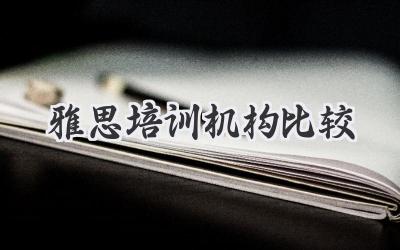 雅思培训机构比较